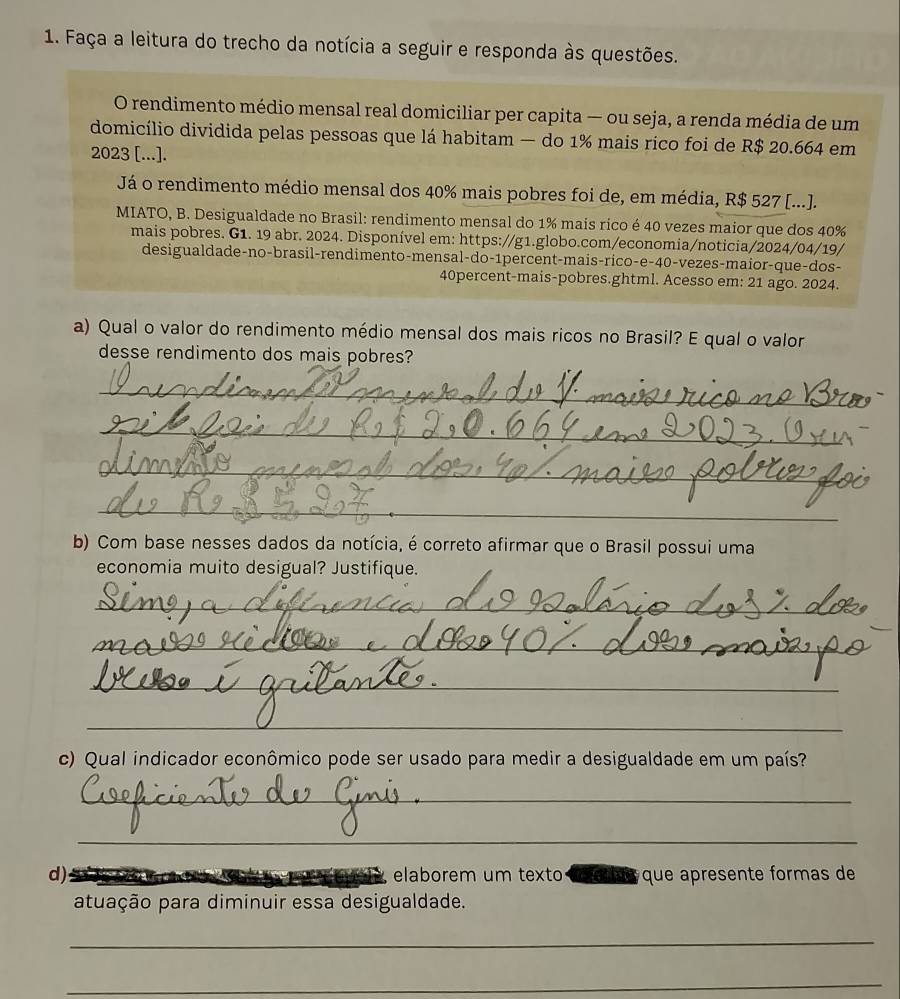 1. Faça a leitura do trecho da notícia a seguir e responda às questões.
O rendimento médio mensal real domiciliar per capita — ou seja, a renda média de um
domicílio dividida pelas pessoas que lá habitam — do 1% mais rico foi de R$ 20.664 em
2023 [...].
Já o rendimento médio mensal dos 40% mais pobres foi de, em média, R$ 527 [...].
MIATO, B. Desigualdade no Brasil: rendimento mensal do 1% mais rico é 40 vezes maior que dos 40%
mais pobres. G1. 19 abr. 2024. Disponível em: https://g1.globo.com/economia/noticia/2024/04/19/
desigualdade-no-brasil-rendimento-mensal-do-1percent-mais-rico-e-40-vezes-maior-que-dos-
40percent-mais-pobres.ghtml. Acesso em: 21 ago. 2024.
a) Qual o valor do rendimento médio mensal dos mais ricos no Brasil? E qual o valor
desse rendimento dos mais pobres?
O rendimento mensal do 1% mais rico no Bra-
sil foi de R$ 20.664 em 2023. O ren-
dimento mensal dos 40% mais pobres foi
de R$ 527.
b) Com base nesses dados da notícia, é correto afirmar que o Brasil possui uma
economia muito desigual? Justifique.
Sim, a diferença do salário dos % dos
mais ricos e dos 40% dos mais po-
bres é gritante.
c) Qual indicador econômico pode ser usado para medir a desigualdade em um país?
Coeficiente de Gini.
d) elaborem um texto que apresente formas de
atuação para diminuir essa desigualdade.